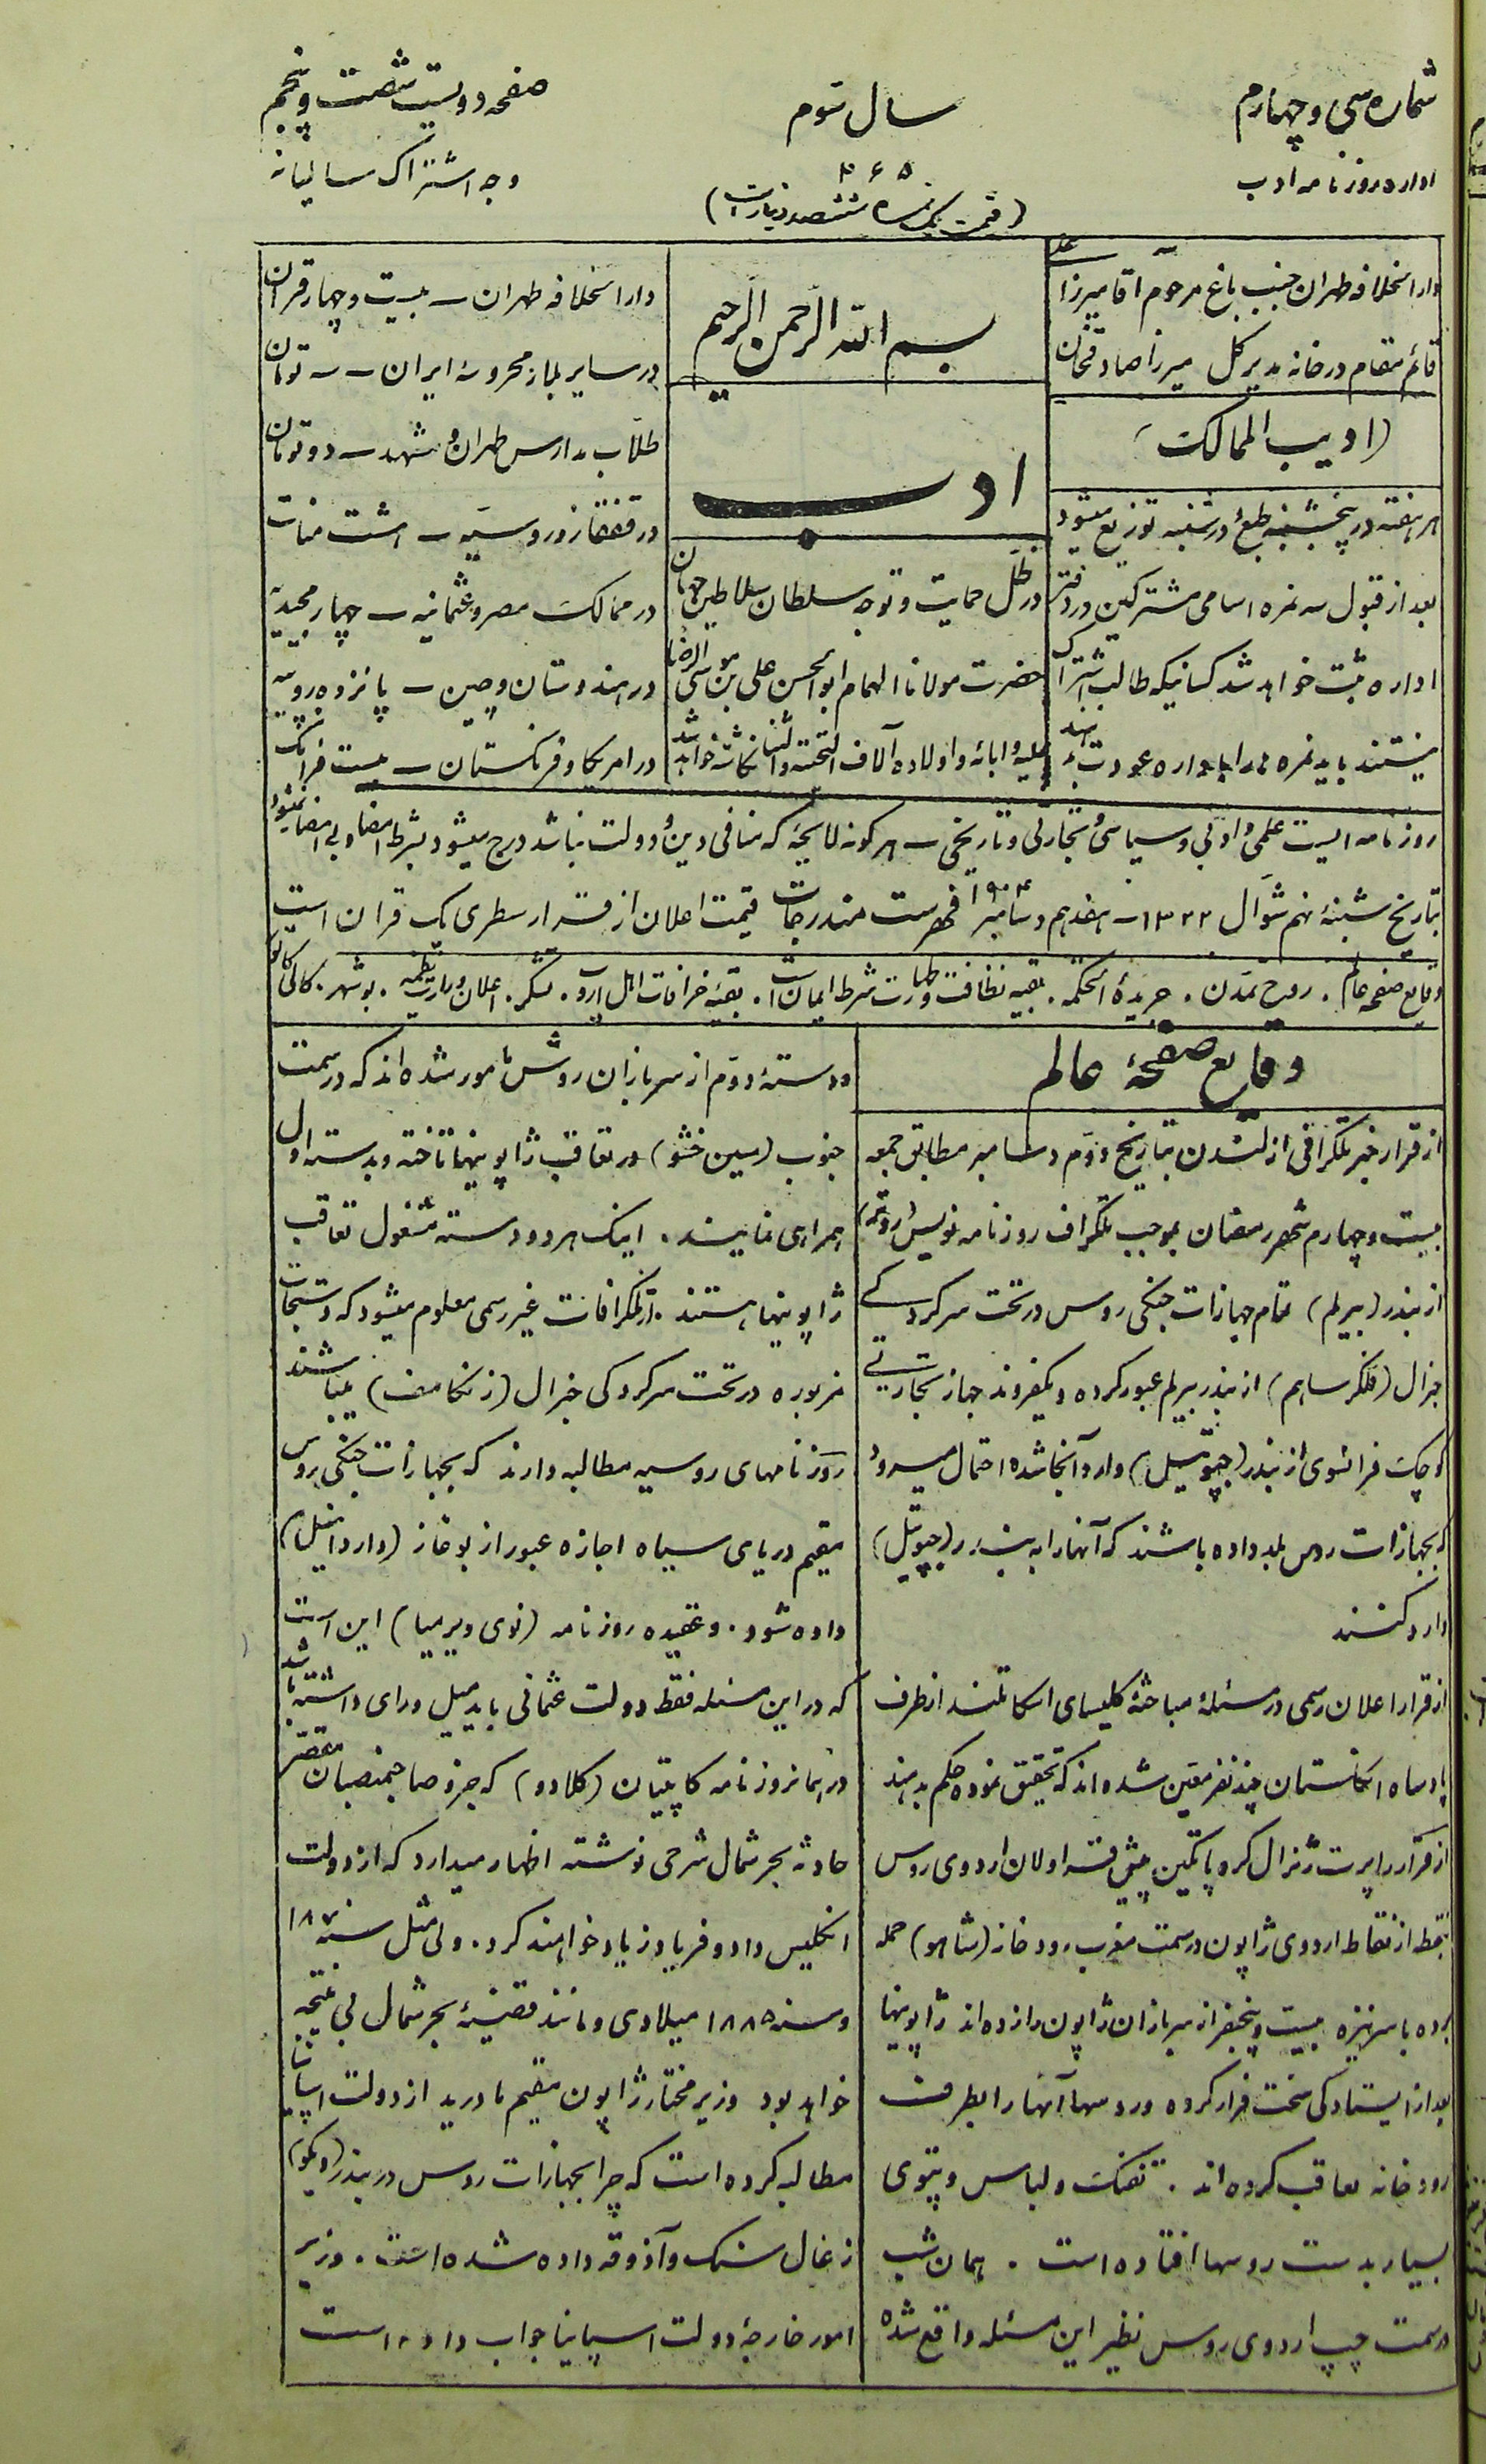 شماره سی و چهارم
سال سّوم
صفحه دویست شصت و پنجم
اداره روزنامه ادب
۲۶۵
وجه اشتراک سالیانه
(قیمت یک نمره ششصد دینار است)
دارالخلافه طهران جنب باغ مرحوم آقا میرزا
قائم مقام در خانه مدیر کل میرزا صادقخان
(ادیب الممالک)
هر هفته در پنجشنبه طبع و در شنبه توزیع میشود
بعد از قبول سه نمره اسامی مشترکین در دفتر
اداره ثبت خواهد شد کسانیکه طالب اشتراک
نیستند باید نمره را باداره عودت بدهند
بسم الله الرّحمن الرّحیم
ادب
در ظلّ حمایت و توجه سلطان سلاطین جهان
حضرت مولانا الهمام ابوالحسن علی بن موسی الرضا
علیه و ابائه و اولاده آلاف التحیته و الثنا نگاشته خواهد شد
دارالخلافه طهران ــ بیست و چهار قران
در سایر بلاد محروسه ایران ــ سه تومان
طلّاب مدارس طهران و مشهد ــ دو تومان
در قفقاز و روسیّه ــ هشت منات
در ممالک مصر و عثمانیه ــ چهار مجیدیّه
در هندوستان و چین ــ پانزده روپیه
در امریکا و فرنگستان ــ بیست فرانک
روزنامه ایست علمی و ادبی و سیاسی و تجارتی و تاریخی ــ هرگونه لایحۀ که منافی دین و دولت نباشد درج میشود بشرط امضا و بی امضا نمیشود
بتاریخ شنبۀ نهم شوّال ۱۳۲۲ ــ هفدهم دسامبر ۱۹۰۴ فهرست مندرجات قیمت اعلان از قرار سطری یک قران است
وقایع صفحه عالم . روح تمدّن . جریدۀ الحکمه . بقیه نظافت و طهارت شرط ایمان است . بقیّۀ خرافات اهل اروپ . تشکّر . اعلان وزارت نظمیّه . بوشهر .
وقایع صفحۀ عالم
از قرار خبر تلگرافی از لندن بتاریخ دوّم دسامبر مطابق جمعه
بیست و چهارم شهر رمضان بموجب تلگراف روزنامه نویس (روتر)
از بندر (بیرلم) تمام جهازات جنگی روس در تحت سرکردگی
جنرال (فلکرساهم) از بندر بیرلم عبور کرده و یکفروند جهاز تجارتی
کوچک فرانسوی از بندر (جیبوتیل) وارد آنجا شده احتمال میرود
که بجهازات روس بلد داده باشند که آنها را به بندر (جیبوتیل)
وارد کنند
از قرار اعلان رسمی در مسئلۀ مباحثۀ کلیسای اسکاتلند از طرف
پادشاه انگلستان چند نفر معیّن شده اند که تحقیق نموده حکم بدهند
از قرار راپرت ژنرال کروپاتکین پیش قراولان اردوی روس
بنقطه از نقاط اردوی ژاپون در سمت مغرب رودخانه (شاهو) حمله
برده با سر نیزه بیست و پنجنفر از سربازان ژاپون را زده اند ژاپونیها
بعد از ایستادگی سخت فرار کرده و روسها آنها را بطرف
رودخانه تعاقب کرده اند . تفنگ و لباس و پتوی
بسیار بدست روسها افتاده است . همان شب
در سمت چپ اردوی روس نظیر این مسئله واقع شده
و دستۀ دوّم از سربازان روس مامور شده اند که در سمت
جنوب (سین خنثو) در تعاقب ژاپونیها تاخته و بدسته اول
همراهی نمایند . اینک هر دو دسته مشغول تعاقب
ژاپونیها هستند . از تلگرافات غیر رسمی معلوم میشود که دستجات
مزبوره در تحت سرکردگی جنرال (زنکامف) میباشند
روزنامهای روسیه مطالبه دارند که بجهازات جنگی روس
مقیم دریای سیاه اجازه عبور از بوغاز (داردانیل)
داده شود . و عقیده روزنامه (نوی ویرمیا) این است
که در این مسئله فقط دولت عثمانی باید میل و رای داشته باشد
در همانروزنامه کاپیتان (کلادو) که جزو صاحبمنصبان مقصّر
حادثه بحر شمال شرحی نوشته اظهار میدارد که از دولت
انگلیس داد و فریاد زیاد خواهند کرد . ولی مثل سنه ۱۸۷
و سنه ۱۸۸۵ میلادی و مانند قضیّۀ بحر شمال بی نتیجه
خواهد بود وزیر مختار ژاپون مقیم مادرید از دولت اسپانیا
مطالبه کرده است که چرا بجهازات روس در بندر (ویگو)
زغال سنگ و آذوقه داده شده است . وزیر
امور خارجۀ دولت اسپانیا جواب داده است